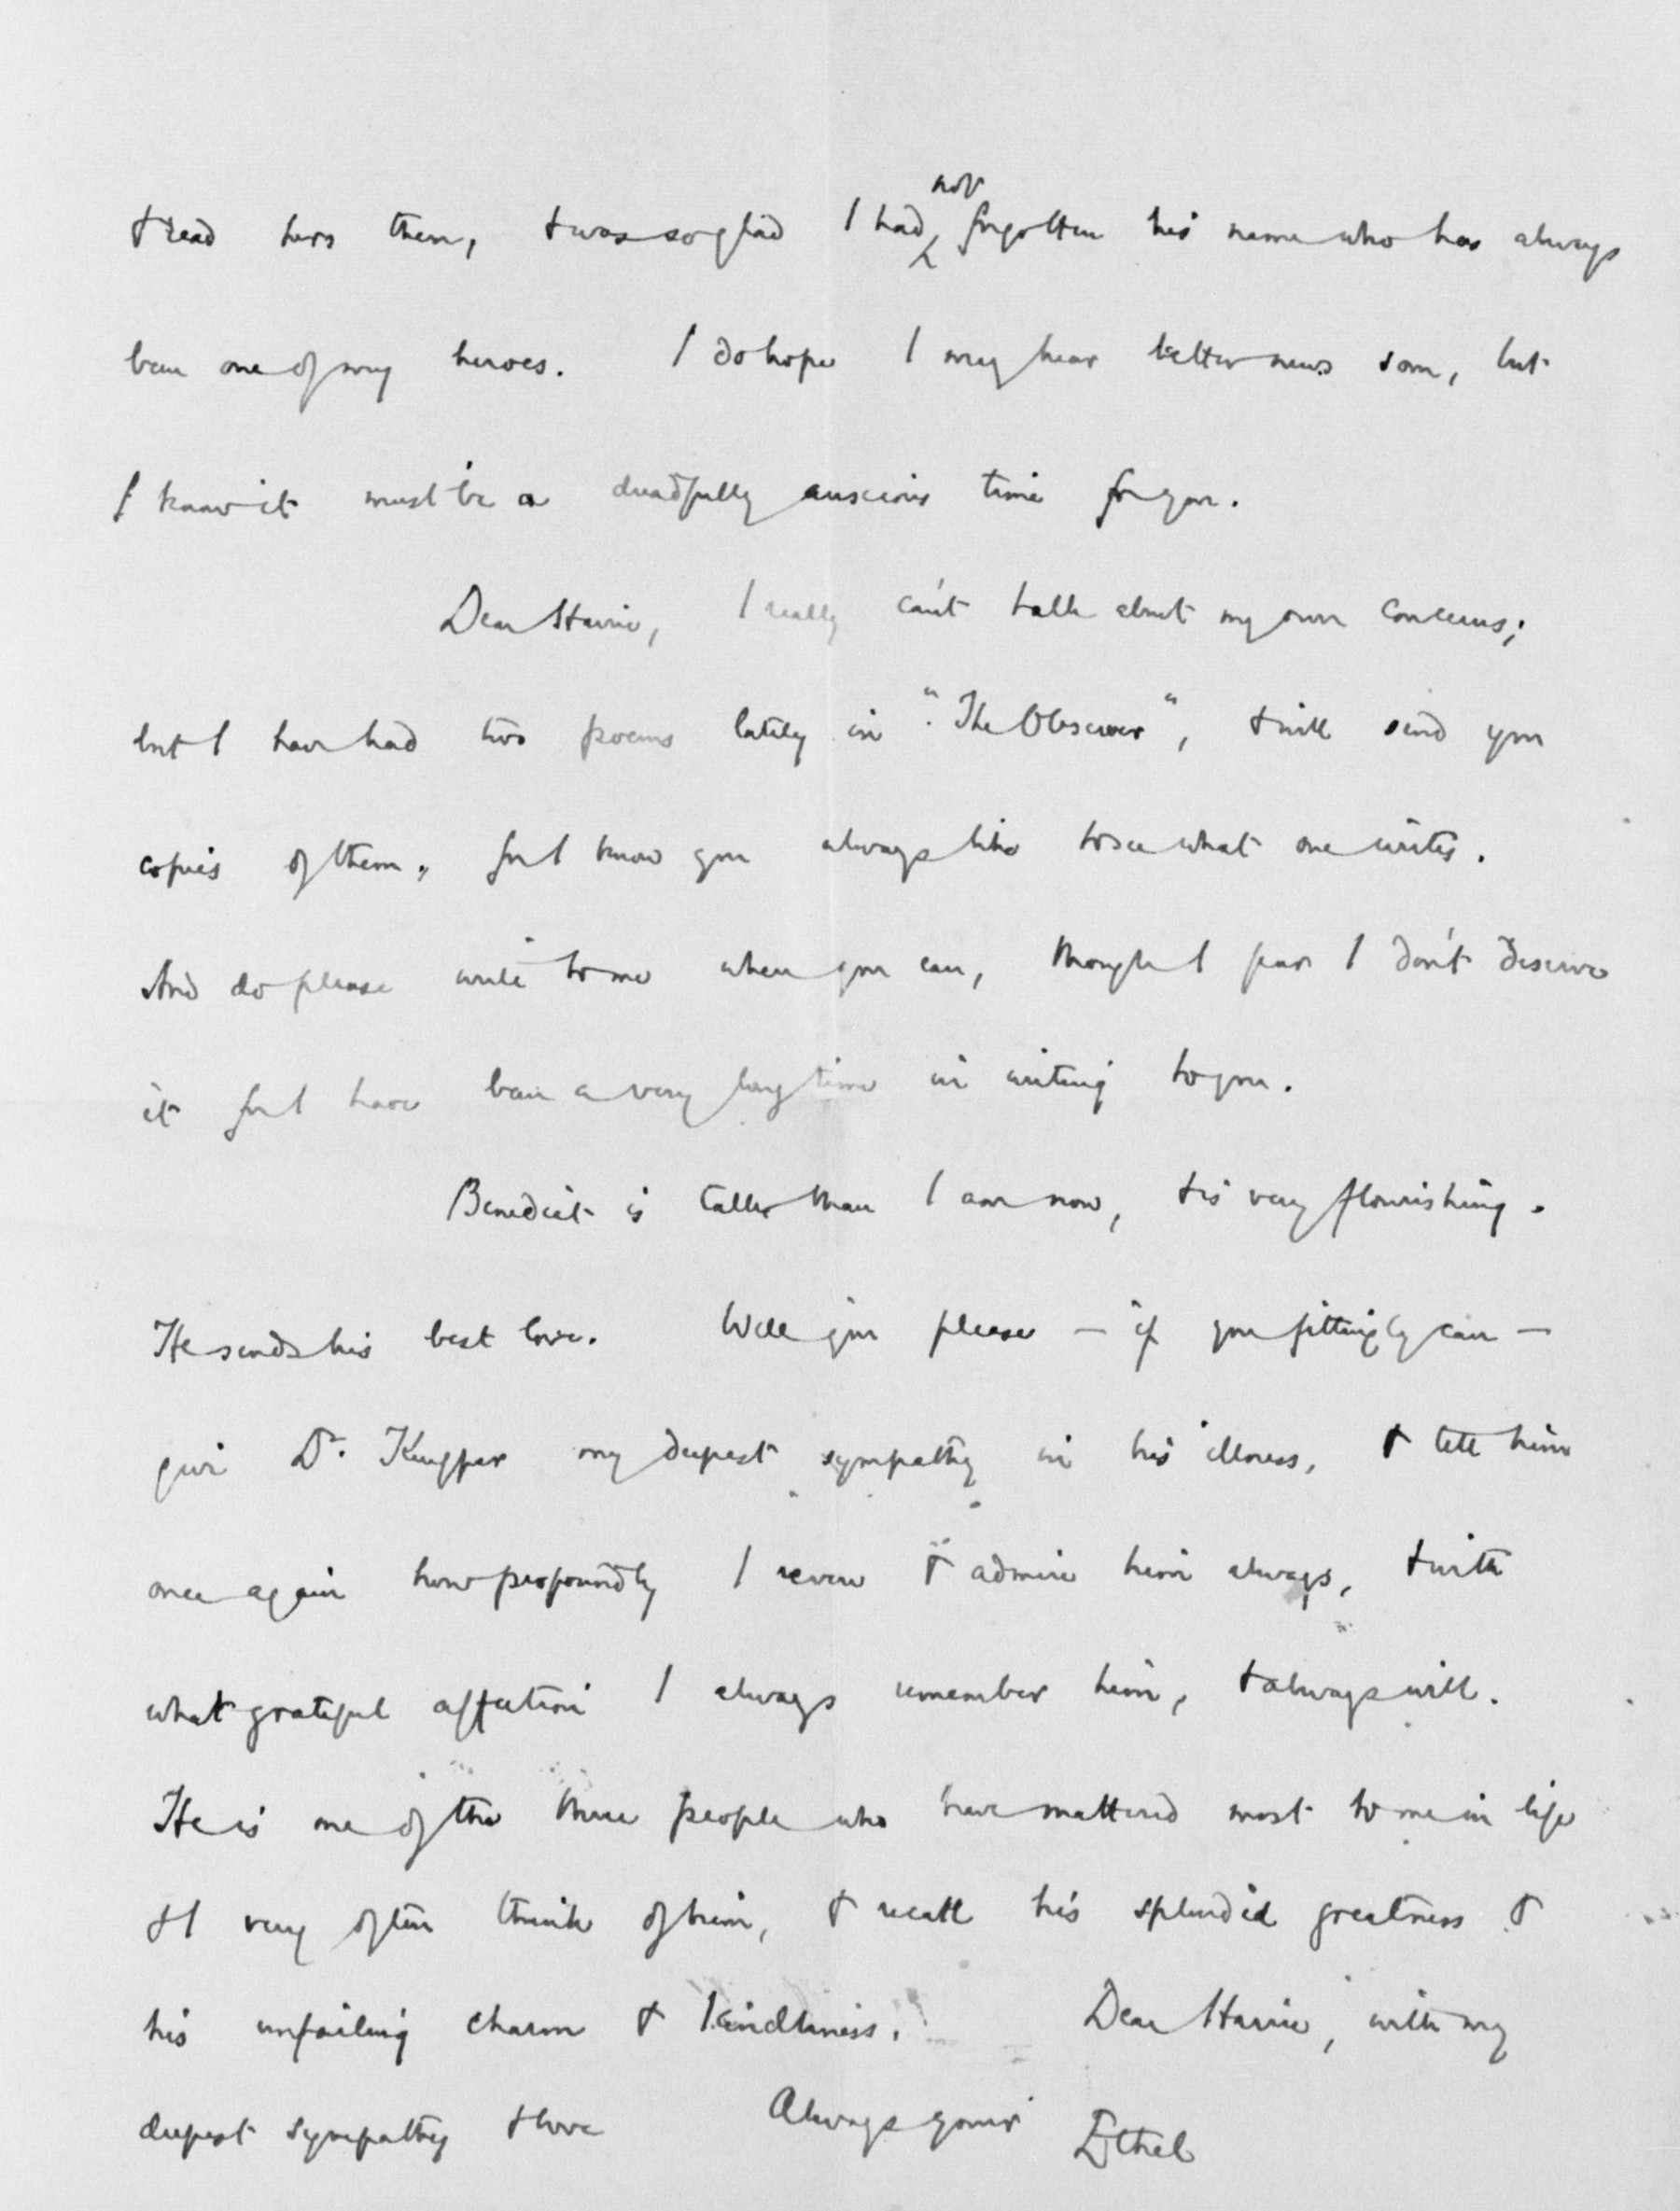 & read hers then, & was so glad I had not forgotten his name who has always
been one of my heroes. I do hope I may hear better news soon, but
I know it must be a dreadfully anxious time for you.
Dear Harrie, I really can't talk about my own concerns;
but I have had two poems lately in "The Observer", & will send you
copies of them, for I know you always like to see what one writes.
And do please write to me when you can, though I fear I don't deserve
it for I have been a very long time in writing to you.
Benedict is taller than I am now, & is very flourishing.
He sends his best love. Will you please — if you fittingly can —
give Dr. my deepest sympathy in his illness, & tell him
once again how profoundly I revere & admire him always, & with
what grateful affection I always remember him, & always will.
He is one of the three people who have mattered most to me in life
& I very often think of him, & recall his splendid greatness &
his unfailing charm & kindliness. Dear Harrie, with my
deepest sympathy & love Always yours Ethel